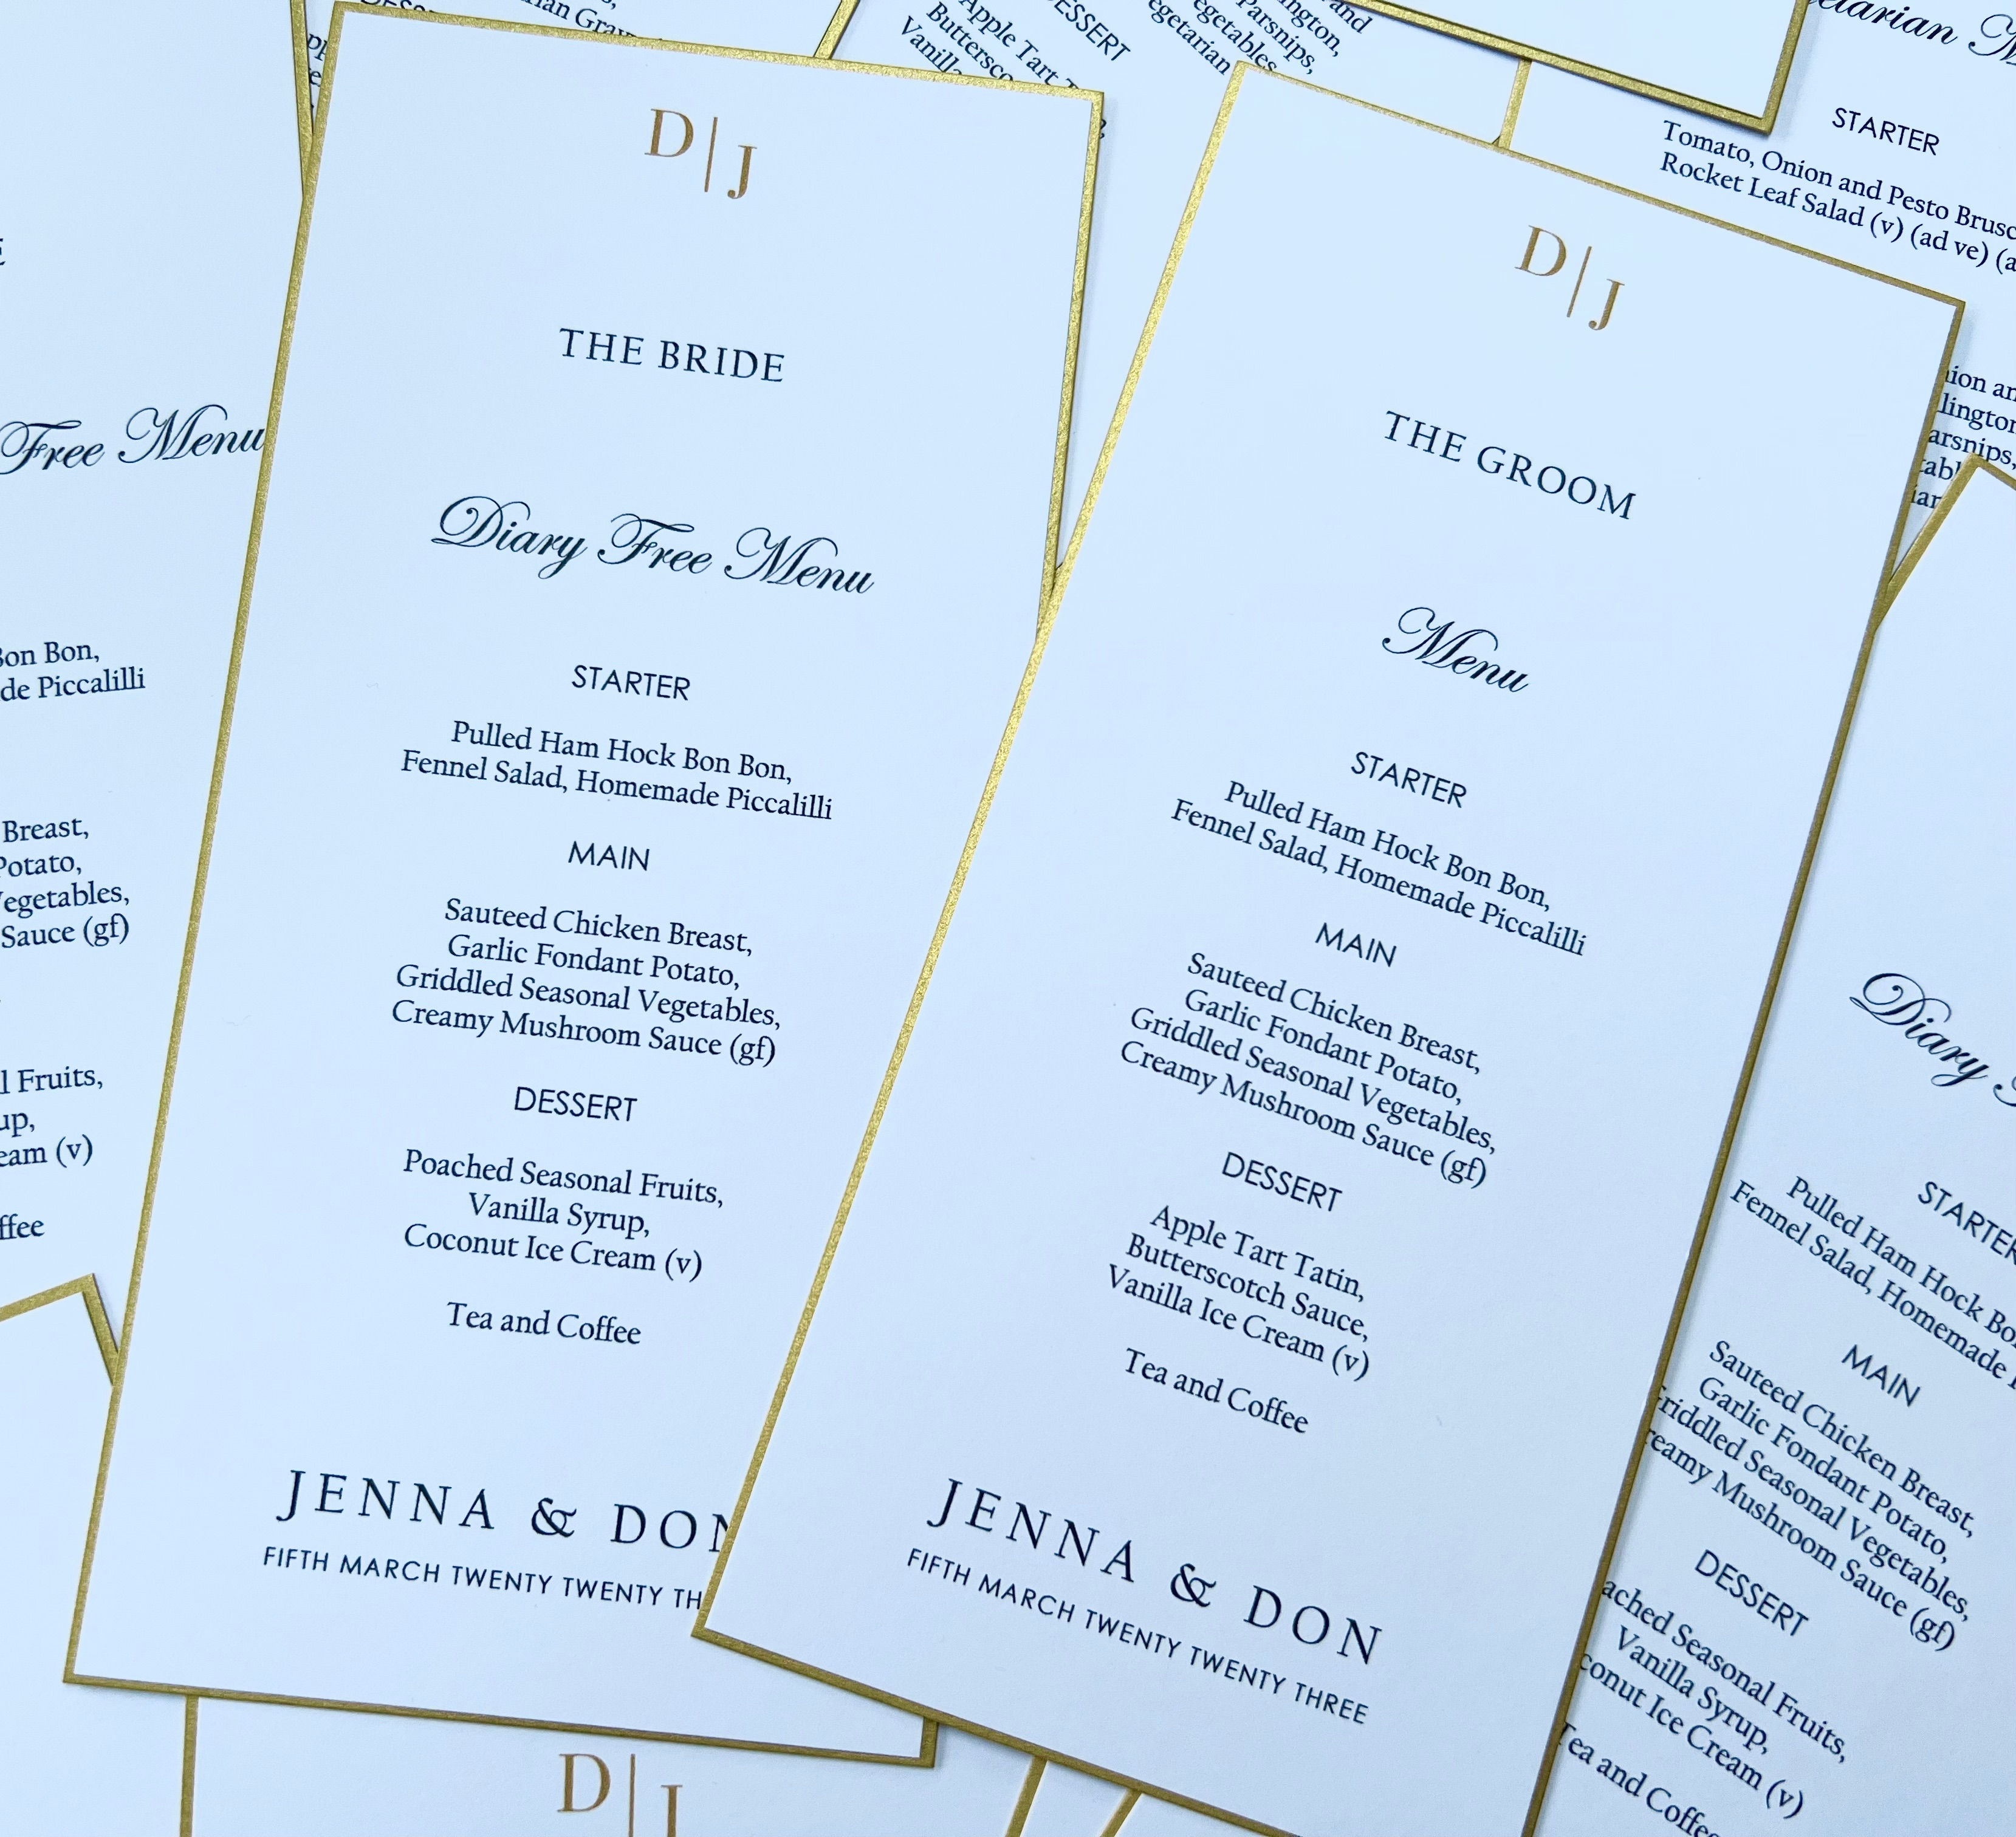 D|J
THE BRIDE
Diary Free Menu
STARTER
Pulled Ham Hock Bon Bon,
Fennel Salad, Homemade Piccalilli
MAIN
Sauteed Chicken Breast,
Garlic Fondant Potato,
Griddled Seasonal Vegetables,
Creamy Mushroom Sauce (gf)
DESSERT
Poached Seasonal Fruits,
Vanilla Syrup,
Coconut Ice Cream (v)
Tea and Coffee
JENNA & DON
FIFTH MARCH TWENTY TWENTY
D|J
THE GROOM
Menu
STARTER
Pulled Ham Hock Bon Bon,
Fennel Salad, Homemade Piccalilli
MAIN
Sauteed Chicken Breast,
Garlic Fondant Potato,
Griddled Seasonal Vegetables,
Creamy Mushroom Sauce (gf)
DESSERT
Apple Tart Tatin,
Butterscotch Sauce,
Vanilla Ice Cream (v)
Tea and Coffee
JENNA & DON
FIFTH MARCH TWENTY TWENTY THREE
Free Menu
Bon Bon,
Piccalilli
Breast,
Potato,
Vegetables,
Sauce (gf)
Fruits,
(v)
DESSERT
Apple Tart
Vanilla
Parsnips,
Vegetables
Vegetarian
STARTER
Tomato, Onion and Pesto
Rocket Leaf Salad (v) (ad ve)
Diary
STARTER
Pulled Ham Hock
Fennel Salad, Homemade
MAIN
Sauteed Chicken Breast,
Garlic Fondant Potato,
Griddled Seasonal Vegetables,
Creamy Mushroom Sauce (gf)
DESSERT
Seasonal Fruits,
Vanilla Syrup,
Ice Cream (v)
Tea and Coffee
D|J